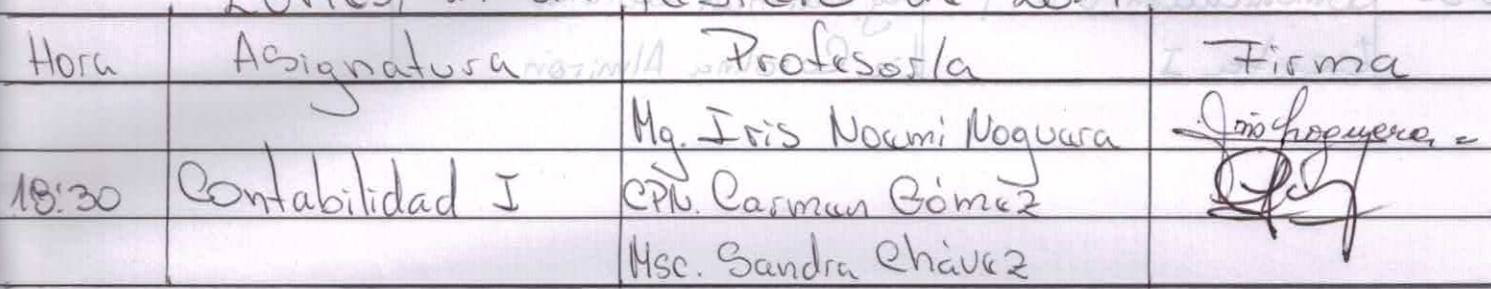 Hora Asignatura Profesor/a Firma
Mg. Iris Noemi Noguera
18:30 Contabilidad I CPN. Carmen Gómez
Msc. Sandra Chávez